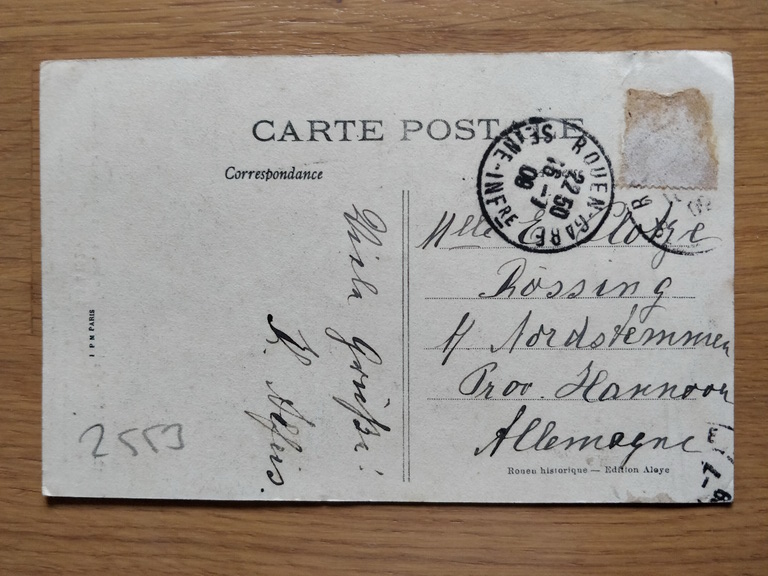 CARTE POSTALE
Correspondance
ROUEN-GARE
SEINE-INFRE
22 50
16 - 7
09
Mlle E. Klotze
Rössing
b/ Nordstemmen
Prov. Hannover
Allemagne
Viele Grüße!
K.
I P M PARIS
2553
Rouen historique — Edition Aloye